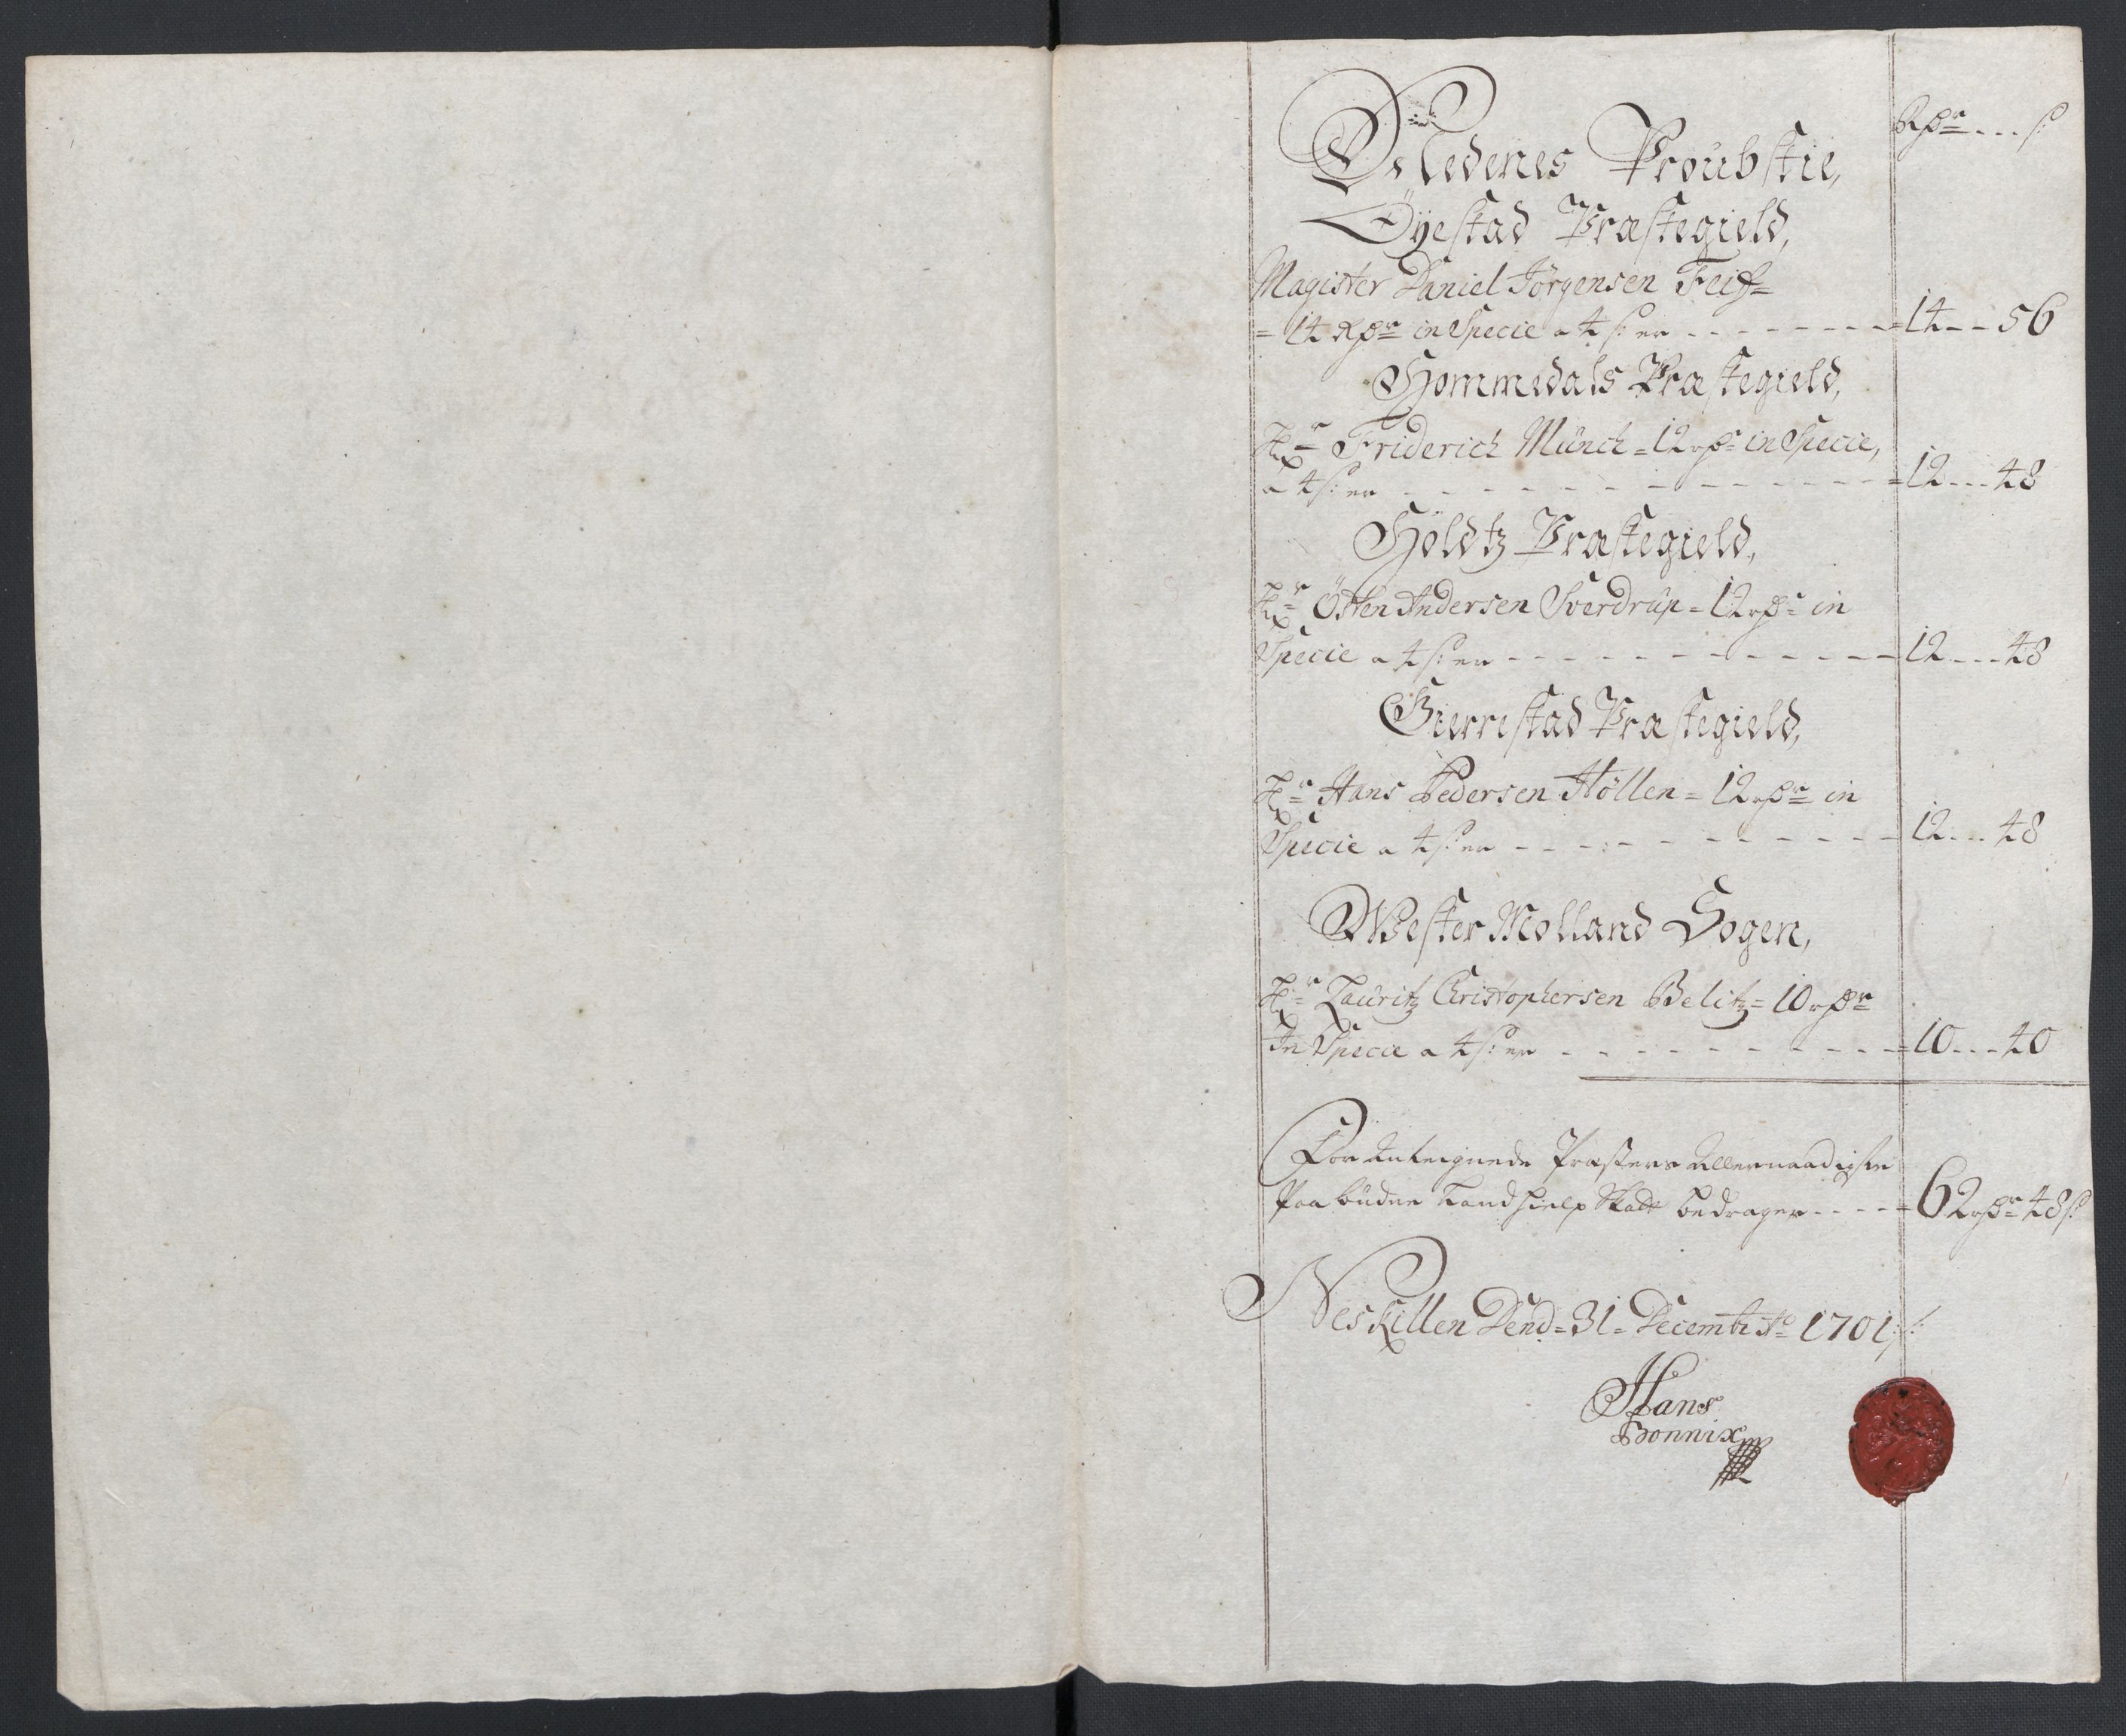 Rdr --- s:
Nedenes Proubstie,
Öyestad Præstegield,
Magister Daniel Jörgensen Feiff=
= 14 Rdr in Specie a 4 s: er - - - - - - - = 14 - - 56
Hommedals Præstegield,
Hr Friderich Münch = 12 rdr in Specie,
a 4 s: er - - - - - - - - - - - = 12 --- 48
Höldtz Præstegield,
Hr Östen Andersen Sverdrup = 12 rdr in
Specie a 4 s: er - - - - - - - - - - - 12 --- 48
Gierrestad Præstegield,
Hr Hans Pedersen Höllen = 12 rdr in
Specie a 4 s: er - - - - - - - - - - - 12 --- 48
Wester Molland Sogen,
Hr Lauritz Christophersen Belitz = 10 rdr
In Specie a 4 s: er - - - - - - - - - = 10 --- 40
For Præsters Allernaadigste
Paabudne Land hielp Skatt bedrager - - - - = 62 rdr 48 s:
Neskillen Dend = 31 = Decembr Ao 1701 ./.
Hans
Bonnix